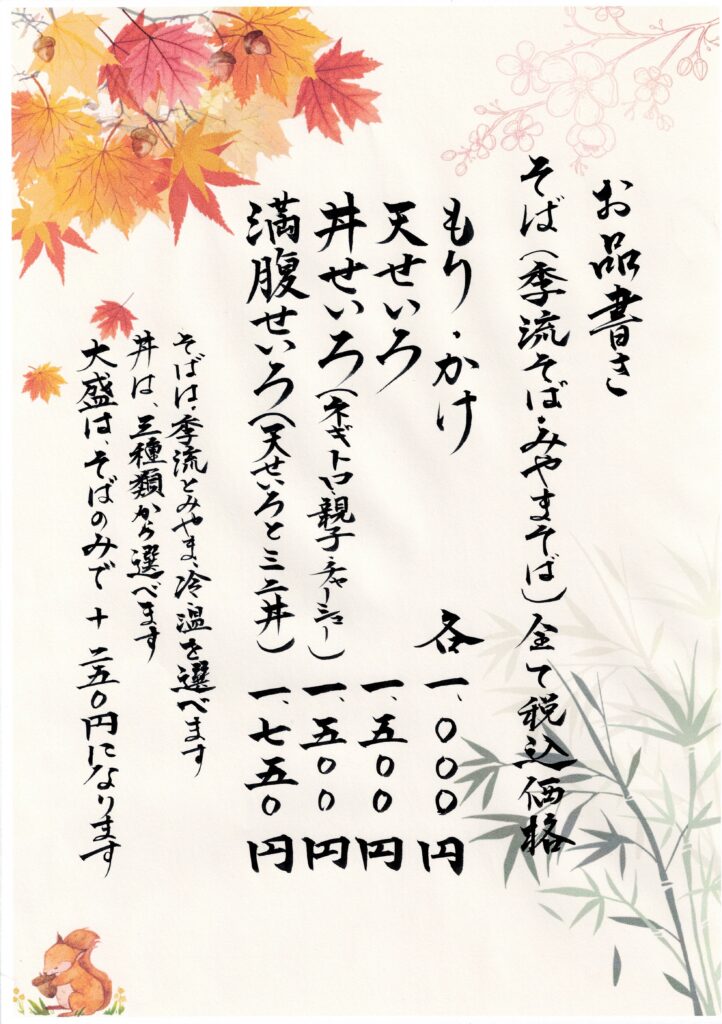 お品書き
そば（季流そば・みやまそば）全て税込価格
もり・かけ 各一、〇〇〇円
天せいろ 一、五〇〇円
丼せいろ（ネギトロ・親子・チャーシュー）一、五〇〇円
満腹せいろ（天せいろとミニ丼）一、七五〇円
そばは、季流とみやま、冷・温を選べます
丼は、三種類から選べます
大盛は、そばのみで＋二五〇円になります